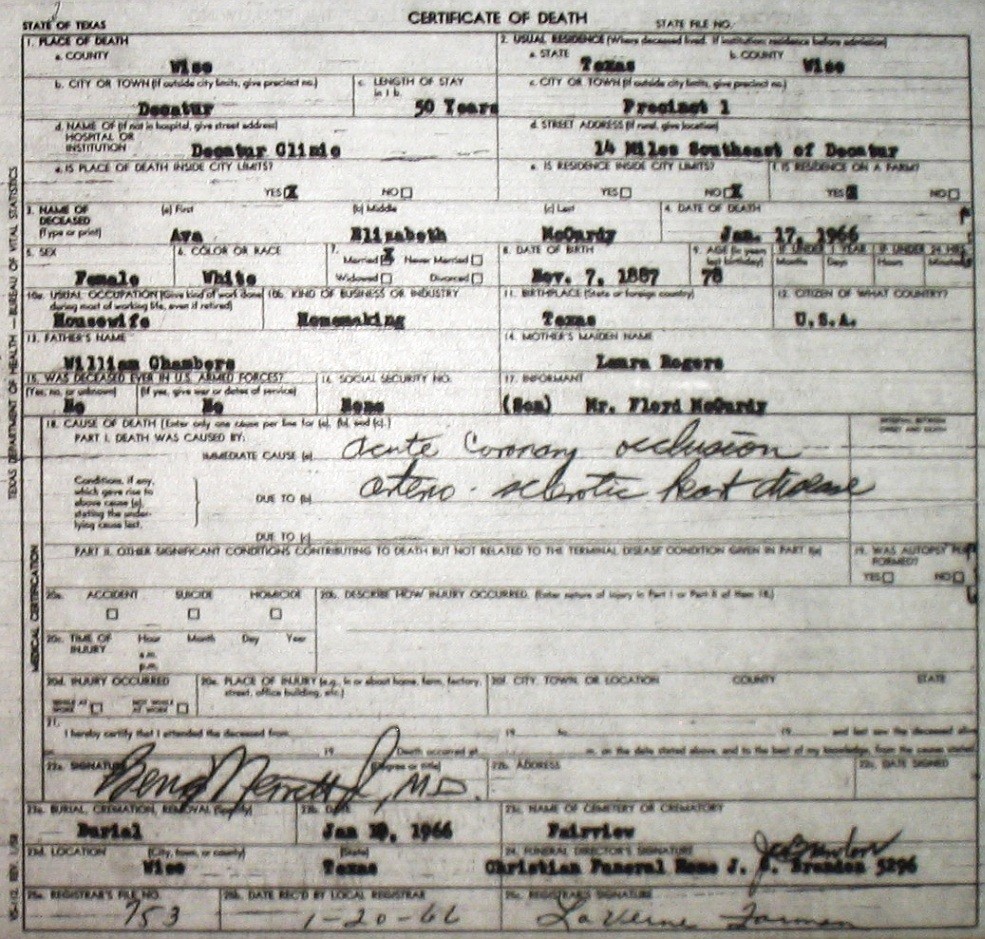 CERTIFICATE OF DEATH
STATE OF TEXAS
STATE FILE NO.
1. PLACE OF DEATH
a. COUNTY
Wise
2. USUAL RESIDENCE (Where deceased lived. If institution: residence before admission)
a. STATE
Texas
b. COUNTY
Wise
b. CITY OR TOWN (If outside city limits, give precinct no.)
Decatur
c. LENGTH OF STAY in 1 b.
50 Years
c. CITY OR TOWN (If outside city limits, give precinct no.)
Precinct 1
d. NAME OF (If not in hospital, give street address)
HOSPITAL OR
INSTITUTION
Decatur Clinic
d. STREET ADDRESS (If rural, give location)
14 Miles Southeast of Decatur
e. IS PLACE OF DEATH INSIDE CITY LIMITS?
YES X NO
e. IS RESIDENCE INSIDE CITY LIMITS?
YES NO X
f. IS RESIDENCE ON A FARM?
YES X NO
3. NAME OF
DECEASED
(Type or print)
(a) First
Ava
(b) Middle
Elizabeth
(c) Last
McCurdy
4. DATE OF DEATH
Jan. 17, 1966
5. SEX
Female
6. COLOR OR RACE
White
7.
Married X Never Married
Widowed Divorced
8. DATE OF BIRTH
Nov. 7, 1887
9. AGE (In years
last birthday)
78
IF UNDER 1 YEAR
Months Days
IF UNDER 24 HRS.
Hours Minutes
10a. USUAL OCCUPATION (Give kind of work done
during most of working life, even if retired)
Housewife
10b. KIND OF BUSINESS OR INDUSTRY
Homemaking
11. BIRTHPLACE (State or foreign country)
Texas
12. CITIZEN OF WHAT COUNTRY?
U.S.A.
13. FATHER'S NAME
William Chambers
14. MOTHER'S MAIDEN NAME
Rogers
15. WAS DECEASED EVER IN U.S. ARMED FORCES?
(Yes, no, or unknown)
No
(If yes, give war or dates of service)
No
16. SOCIAL SECURITY NO.
None
17. INFORMANT
(Son) Mr. Floyd McCurdy
18. CAUSE OF DEATH (Enter only one cause per line for (a), (b), and (c).)
INTERVAL BETWEEN
ONSET AND DEATH
PART I. DEATH WAS CAUSED BY:
IMMEDIATE CAUSE (a)
acute Coronary occlusion
Conditions, if any,
which gave rise to
above cause (a),
stating the under-
lying cause last.
DUE TO (b)
arterio-sclerotic heart disease
DUE TO (c)
PART II. OTHER SIGNIFICANT CONDITIONS CONTRIBUTING TO DEATH BUT NOT RELATED TO THE TERMINAL DISEASE CONDITION GIVEN IN PART I(a)
19. WAS AUTOPSY PER
FORMED?
YES NO
20a. ACCIDENT SUICIDE HOMICIDE
20b. DESCRIBE HOW INJURY OCCURRED. (Enter nature of injury in Part I or Part II of item 18.)
20c. TIME OF
INJURY
Hour Month Day Year
a.m.
p.m.
20d. INJURY OCCURRED
WHILE AT
WORK
NOT WHILE
AT WORK
20e. PLACE OF INJURY (e.g., in or about home, farm, factory,
street, office building, etc.)
20f. CITY, TOWN, OR LOCATION COUNTY STATE
21.
I hereby certify that I attended the deceased from 19 to 19 and last saw the deceased alive
on 19 Death occurred at m. on the date stated above, and to the best of my knowledge, from the causes stated.
22a. SIGNATURE
(Degree or title)
M.D.
22b. ADDRESS
22c. DATE SIGNED
23a. BURIAL, CREMATION, REMOVAL (Specify)
Burial
23b. DATE
Jan 1966
23c. NAME OF CEMETERY OR CREMATORY
Fairview
23d. LOCATION (City, town, or county) (State)
Wise Texas
24. FUNERAL DIRECTOR'S SIGNATURE
Christian Funeral Home J. Brandon 5296
25a. REGISTRAR'S FILE NO.
753
25b. DATE REC'D BY LOCAL REGISTRAR
1-20-66
25c. REGISTRAR'S SIGNATURE
LaVerne
TEXAS DEPARTMENT OF HEALTH — BUREAU OF VITAL STATISTICS
MEDICAL CERTIFICATION